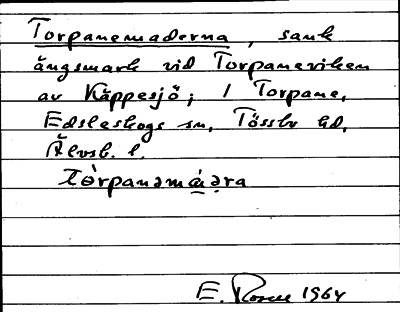 Torpanemaderna, sank
ängsmark vid Torpaneviken
av Käppesjö; 1 Torpane,
Edsleskogs sn, Tössbo hd,
Älvsb. l.
tòrpanəmáəra
E. Rosén 1964